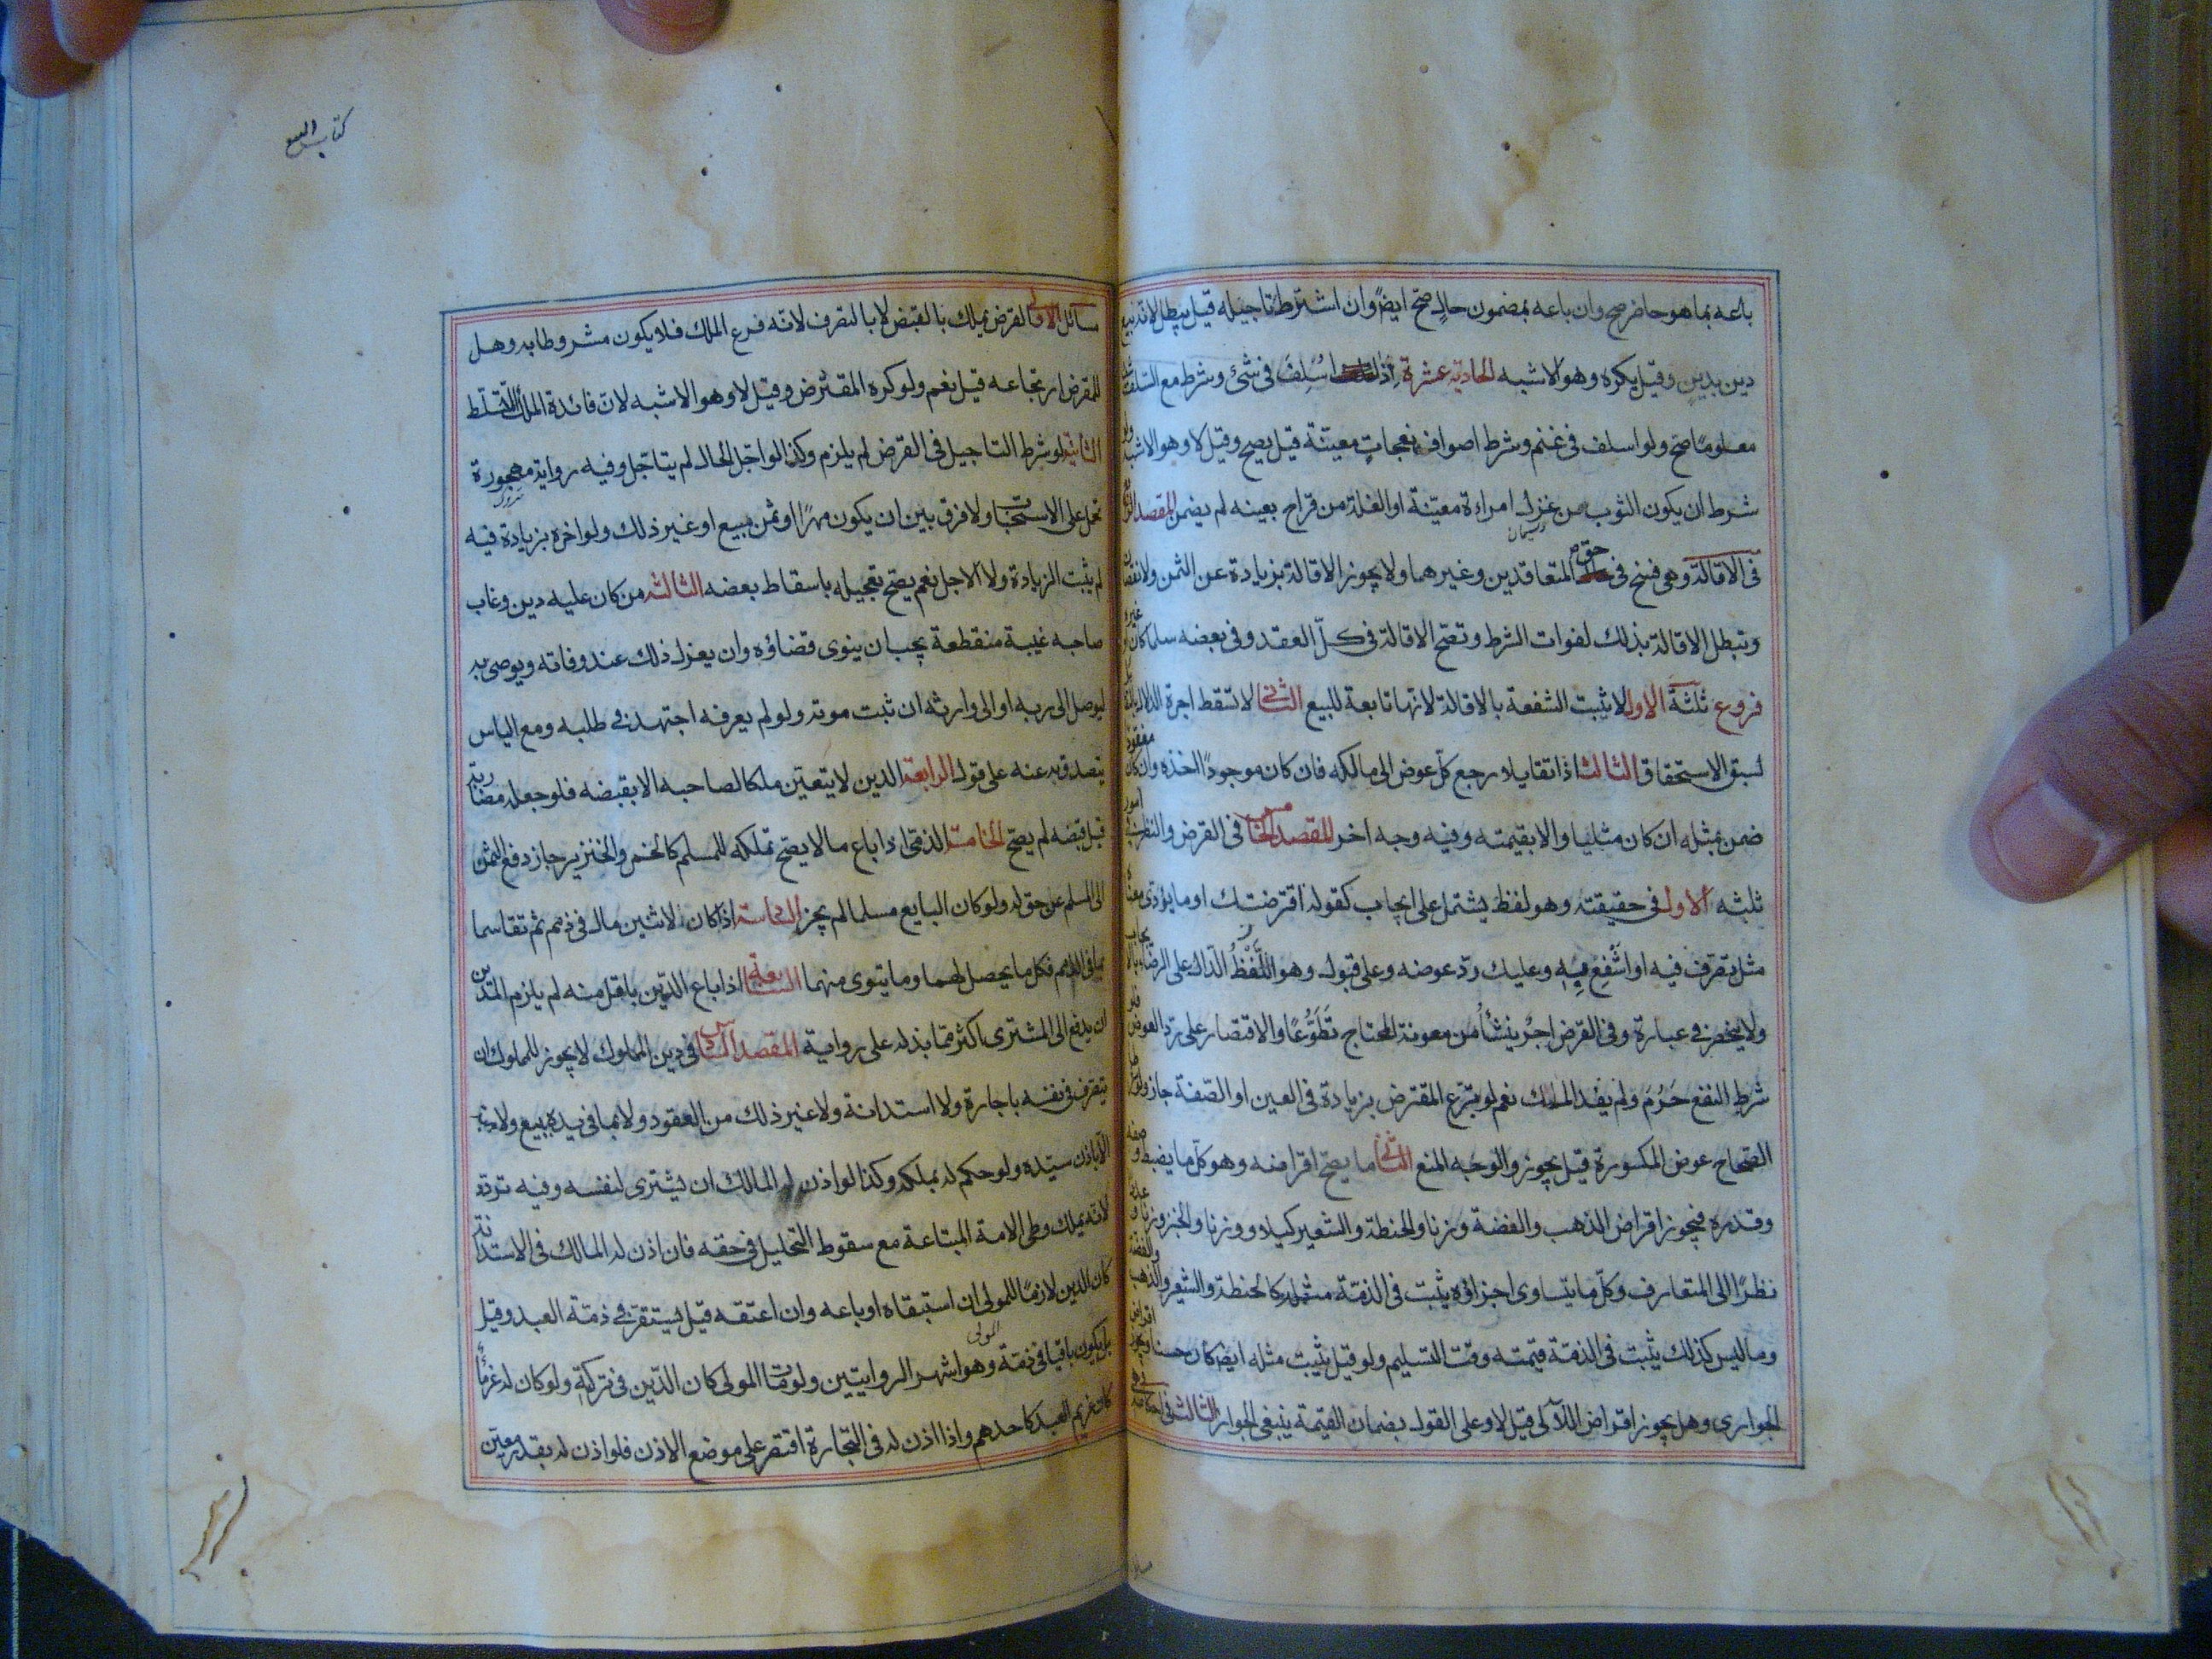 باعه بما هو حاضر صح وان باعه بمضمون حال صح ايضا وان اشترط تاجيله قيل يبطل لانه بيع
دين بدين وقيل يكره وهو الاشبه الحادية عشرة اذا اسلف فى شىء وشرط مع السلف
معلوما صح ولو اسلف فى غنم وشرط اصواف نعجات معينة قيل يصح وقيل لا وهو الاشبه ولو
شرط ان يكون الثوب من غزل امراءة معينة او الغلة من قراح بعينه لم يضمن المقصد الرابع
فى الاقالة وهى فسخ فى حق المتعاقدين وغيرهما ولا يجوز الاقالة بزيادة عن الثمن ولا نقصان
وتبطل الاقالة بذلك لفوات الشرط وتصح الاقالة فى كل العقد وفى بعضه سلما كان او غيره
فروع ثلثة الاول لا يثبت الشفعة بالاقالة لانها تابعة للبيع الثانى لا تسقط اجرة الدلال بالاقالة
لسبق الاستحقاق الثالث اذا تقايلا رجع كل عوض الى مالكه فان كان موجودا اخذه وان كان مفقودا
ضمن بمثله ان كان مثليا والا بقيمته وفيه وجه اخر المقصد الخامس فى القرض والنظر فى امور
ثلثه الاول فى حقيقته وهو لفظ يشتمل على ايجاب كقوله اقرضتك او ما يؤدى معناه
مثل تصرف فيه او انتفع به وعليك رد عوضه وعلى قبول وهو اللفظ الدال على الرضاء بالايجاب
ولا ينحصر فى عبارة وفى القرض اجر ينشأ من معونة المحتاج تطوعا والاقتصار على رد العوض فلو
شرط النفع حرم ولم يفد الملك نعم لو تبرع المقترض بزيادة فى العين او الصفة جاز ولو شرط
الصحاح عوض المكسورة قيل يجوز والوجه المنع الثانى ما يصح اقراضه وهو كل ما يضبط وصفه
وقدره فيجوز اقراض الذهب والفضة وزنا والحنطة والشعير كيلا ووزنا والخبز وزنا وعددا
نظرا الى المتعارف وكل ما يتساوى اجزاؤه يثبت فى الذمة مثله كالحنطة والشعير والذهب والفضة
وما ليس كذلك يثبت فى الذمة قيمته وقت التسليم ولو قيل يثبت مثله ايضا كان حسنا ويجوز اقراض
الجوارى وهل يجوز اقراض اللآلى قيل لا وعلى القول بضمان القيمة ينبغى الجواز الثالث فى احكامه وهى
كتاب البيع
مسائل الاولى القرض يملك بالقبض لا بالتصرف لانه فرع الملك فلا يكون مشروطا به وهل
للمقرض ارتجاعه قيل نعم ولو كره المقترض وقيل لا وهو الاشبه لان فائدة الملك التسلط
الثانية لو شرط التاجيل فى القرض لم يلزم وكذا لو اجل الحال لم يتاجل وفيه رواية مهجورة
تحمل على الاستحباب ولا فرق بين ان يكون مهرا او ثمن مبيع او غير ذلك ولو اخره بزيادة فيه
لم يثبت الزيادة ولا الاجل نعم يصح تعجيله باسقاط بعضه الثالثه من كان عليه دين وغاب
صاحبه غيبة منقطعة يجب ان ينوى قضاؤه وان يعزل ذلك عند وفاته ويوصى به
ليوصل الى ربه او الى وارثه ان ثبت موته ولو لم يعرفه اجتهد فى طلبه ومع الياس
يتصدق به عنه على قول الرابعة الدين لا يتعين ملكا لصاحبه الا بقبضه فلو جعله مضاربة
قبل قبضه لم يصح الخامسة الذمى اذا باع ما لا يصح تملكه للمسلم كالخمر والخنزير جاز دفع الثمن
الى المسلم عن حق له ولو كان البايع مسلما لم يجز السادسة اذا كان لاثنين مال فى ذمم ثم تقاسما
بما فى الذمم فكل ما يحصل لهما وما يتوى منهما السابعة اذا باع الدين باقل منه لم يلزم المدين
ان يدفع الى المشترى اكثر مما بذله على رواية المقصد السادس فى دين المملوك لا يجوز للمملوك ان
يتصرف فى نفسه باجارة ولا استدانة ولا غير ذلك من العقود ولا بما فى يده ببيع ولا
الا باذن سيده ولو حكم له بملكه وكذا لو اذن له المالك ان يشترى لنفسه وفيه تردد
لانه يملك وطى الامة المبتاعة مع سقوط التحليل فى حقه فان اذن له المالك فى الاستدانة
كان الدين لازما للمولى ان استبقاه او باعه وان اعتقه قيل يستقر فى ذمة العبد وقيل
بل يكون باقيا فى ذمة المولى وهو اشهر الروايتين ولو مات المولى كان الدين فى تركته ولو كان له غرماء
كان غريم العبد كاحدهم واذا اذن له فى التجارة اقتصر على موضع الاذن فلو اذن له بقدر معين